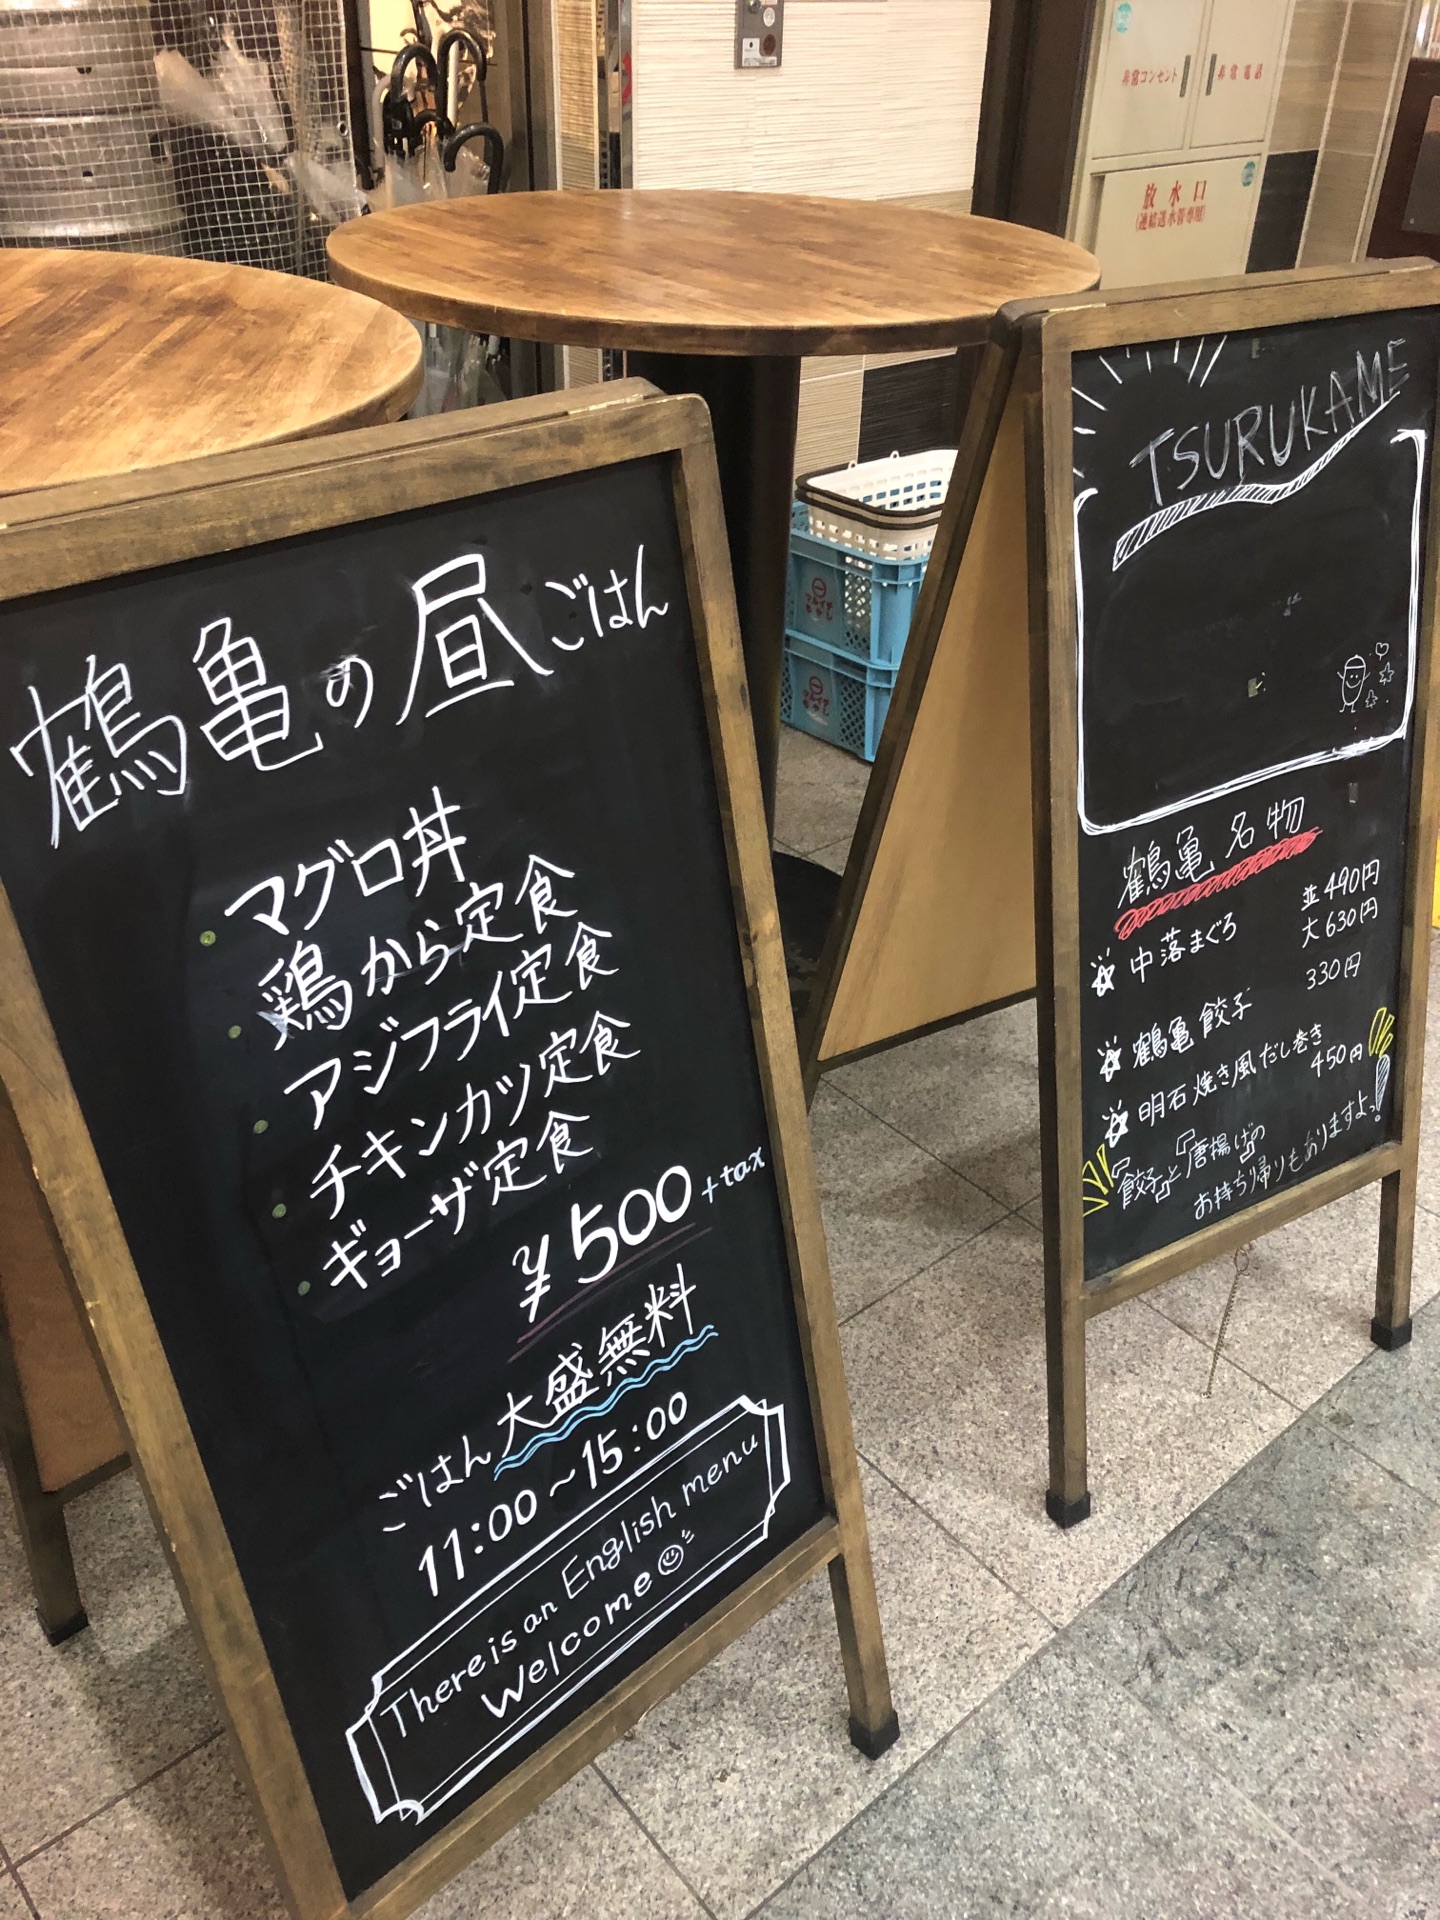 鶴亀の昼ごはん
・マグロ丼
・鶏から定食
・アジフライ定食
・チキンカツ定食
・ギョーザ定食
¥500+tax
ごはん大盛無料
11:00～15:00
There is an English menu
Welcome
TSURUKAME
鶴亀名物
中落まぐろ 並490円
大630円
鶴亀餃子 330円
明石焼き風だし巻き
450円
『餃子』と『唐揚げ』の
お持ち帰りもありますよっ!
非常コンセント
非常電話
放水口
(連結送水管専用)